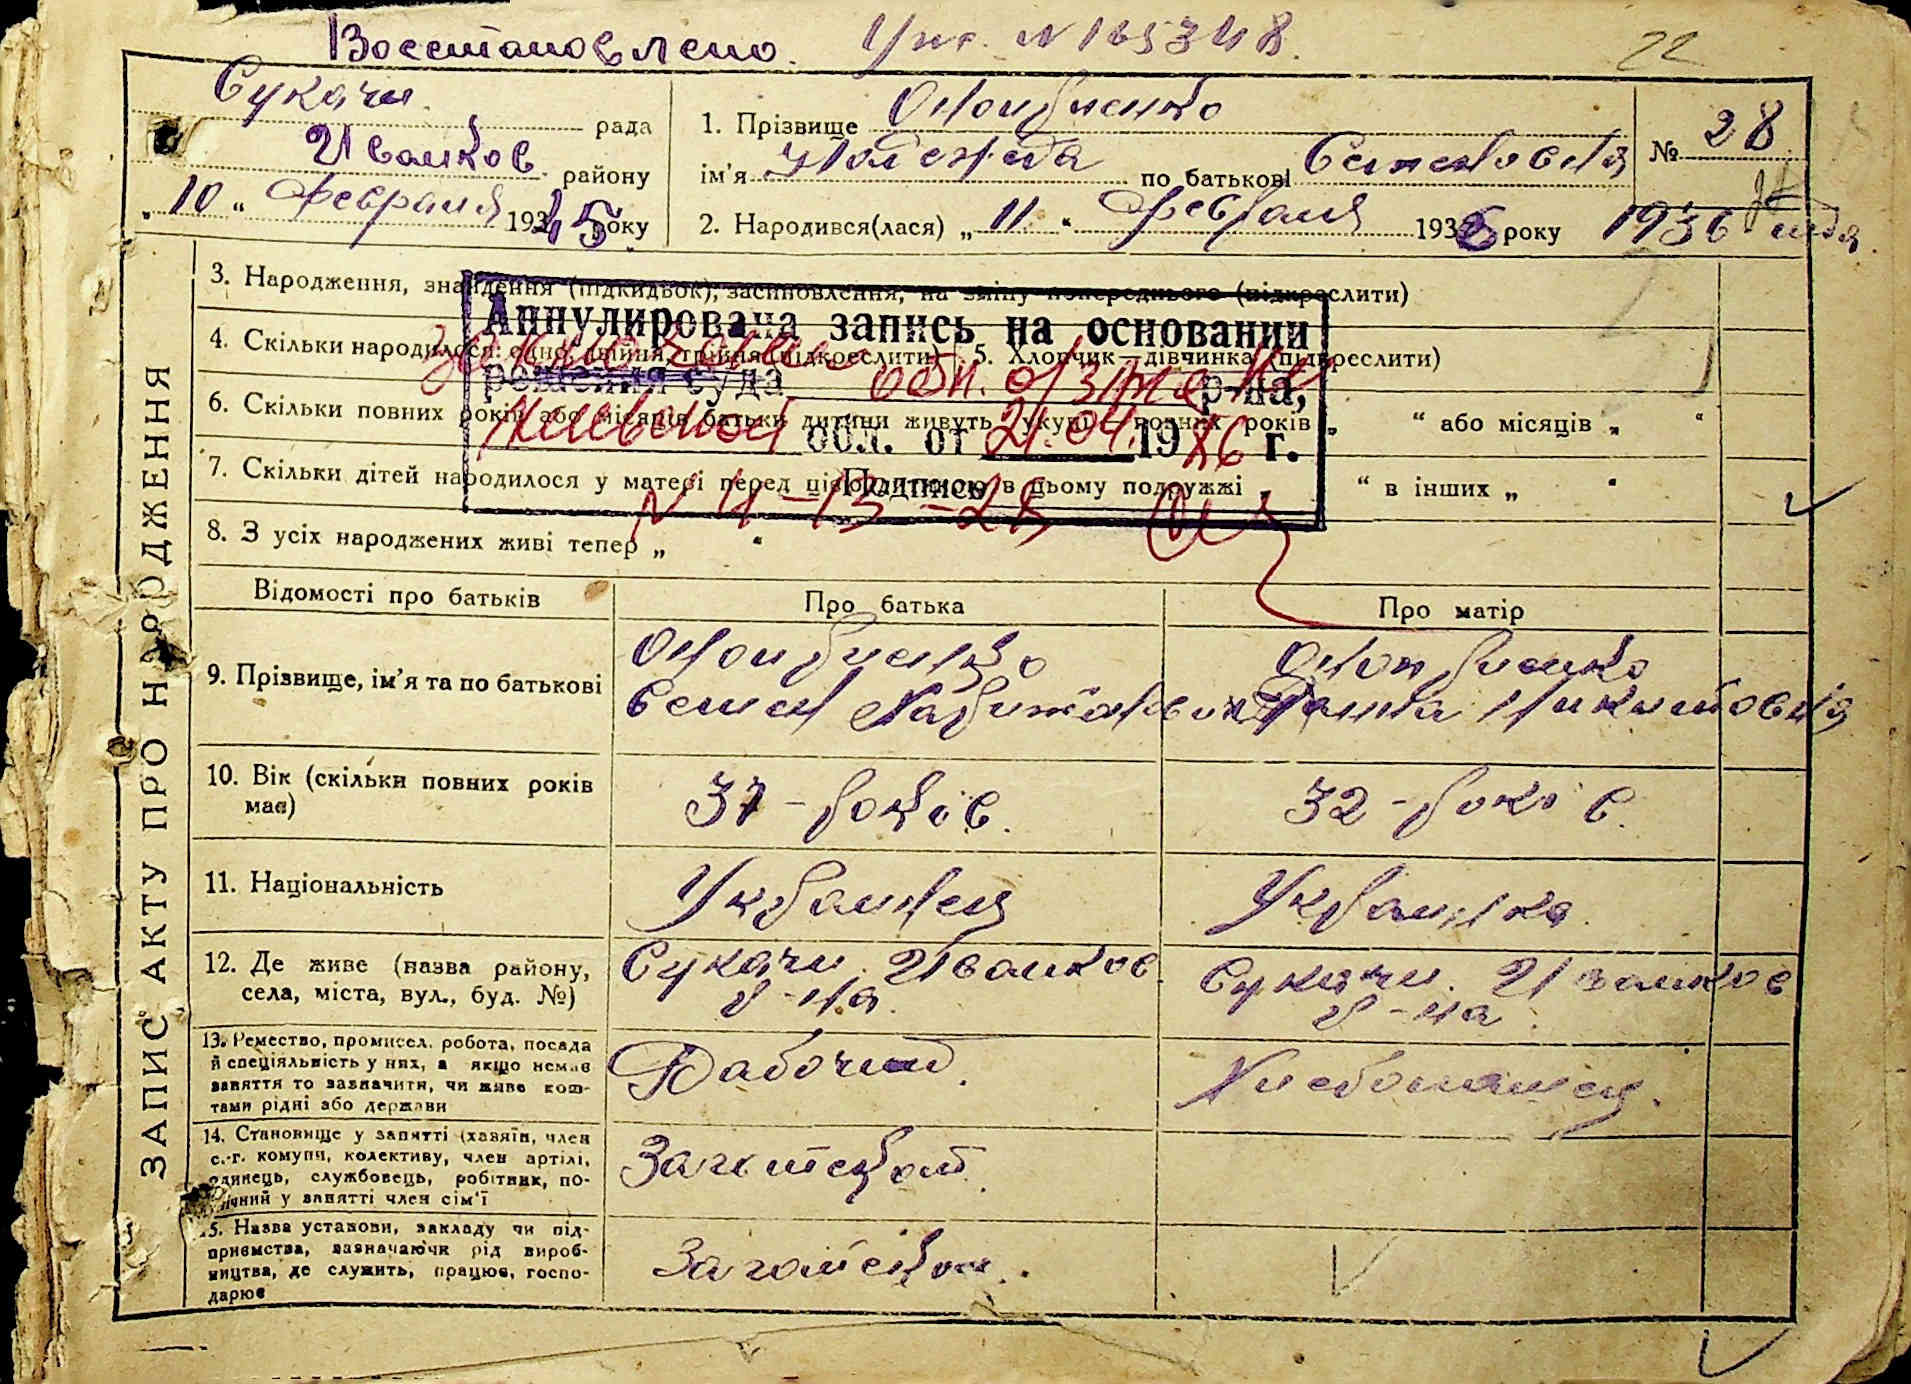 Восстановлено.
22
Сукачи рада
Иванков району
„10“ Февраля 1945 року
1. Прізвище Оноприенко
ім'я Надежда по батькові Семеновна
2. Народився(лася) „11“ Февраля 1936 року 1936
№ 28
ЗАПИС АКТУ ПРО НАРОДЖЕННЯ
3. Народження, знайдення (підкидьок), засиновлення, на зміну попереднього (підкреслити)
4. Скільки народилося: одно, двійня, трійня (підкреслити) 5. Хлопчик—дівчинка (підкреслити)
6. Скільки повних років або місяців батьки дитини живуть вкупі — повних років „ “ або місяців „ “
7. Скільки дітей народилося у матері перед цією дитиною в цьому подружжі „ “ в інших „ “
8. З усіх народжених живі тепер „ “
Аннулирована запись на основании
решения суда р-на,
обл. от 21.04. 1986 г.
Подпись
Відомості про батьків
Про батька
Про матір
9. Прізвище, ім'я та по батькові
Оноприенко
Семен
Оноприенко
10. Вік (скільки повних років має)
37 - років.
32 - років.
11. Національність
Украинец
Украинка.
12. Де живе (назва району, села, міста, вул., буд. №)
Сукачи. Иванков
р-на.
Сукачи. Иванков
р-на.
13. Ремество, промисел, робота, посада
й спеціяльність у них, а якщо немає
заняття то зазначити, чи живе кош-
тами рідні або держави
Рабочий.
Хлебопашец.
14. Становище у занятті (хазяїн, член
с.-г. комуни, колективу, член артілі,
одинець, службовець, робітник, по-
мічний у занятті член сім'ї
15. Назва установи, закладу чи під-
приємства, зазначаючи рід вироб-
ництва, де служить, працює, госпо-
дарює